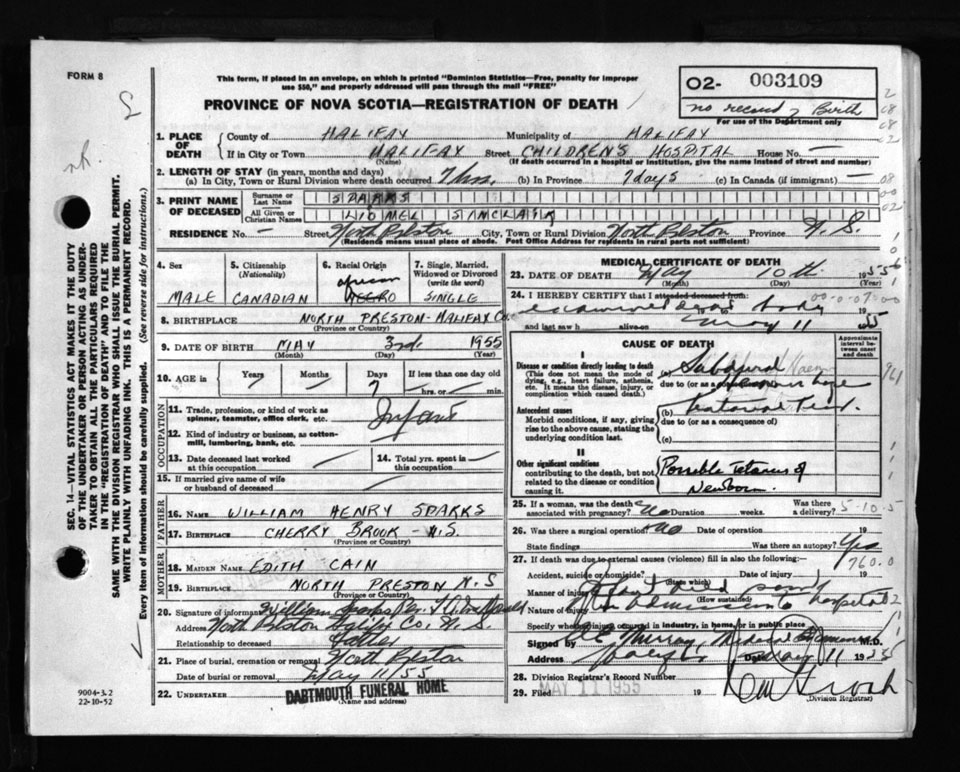 FORM 8
This form, if placed in an envelope, on which is printed "Dominion Statistics—Free, penalty for improper
use $50," and properly addressed will pass through the mail "FREE"
PROVINCE OF NOVA SCOTIA—REGISTRATION OF DEATH
02- 003109
no record of Birth
For use of the Department only
1. PLACE OF DEATH
County of HALIFAX Municipality of HALIFAX
If in City or Town HALIFAX Street CHILDREN'S HOSPITAL House No. —
(Name) (If death occurred in a hospital or institution, give the name instead of street and number)
2. LENGTH OF STAY (in years, months and days)
(a) In City, Town or Rural Division where death occurred 7 hrs. (b) In Province 7 days (c) In Canada (if immigrant) —
3. PRINT NAME OF DECEASED
Surname or Last Name SPARKS
All Given or Christian Names LIONEL SINCLAIR
RESIDENCE No. — Street North Preston City, Town or Rural Division North Preston Province N.S.
(Residence means usual place of abode. Post Office Address for residents in rural parts not sufficient)
4. Sex MALE
5. Citizenship (Nationality) CANADIAN
6. Racial Origin African NEGRO
7. Single, Married, Widowed or Divorced (write the word) SINGLE
8. BIRTHPLACE NORTH PRESTON - HALIFAX Co.
(Province or Country)
9. DATE OF BIRTH MAY 3rd 1955
(Month) (Day) (Year)
10. AGE in Years Months Days 7 If less than one day old hrs. or min.
OCCUPATION
11. Trade, profession, or kind of work as spinner, teamster, office clerk, etc. Infant
12. Kind of industry or business, as cotton-mill, lumbering, bank, etc.
13. Date deceased last worked at this occupation
14. Total yrs. spent in this occupation
15. If married give name of wife or husband of deceased
FATHER
16. NAME WILLIAM HENRY SPARKS
17. BIRTHPLACE CHERRY BROOK - N.S.
(Province or Country)
MOTHER
18. MAIDEN NAME EDITH CAIN
19. BIRTHPLACE NORTH PRESTON N.S
(Province or Country)
20. Signature of informant William Sparks Per
Address North Preston Halifax Co. N.S.
Relationship to deceased Father
21. Place of burial, cremation or removal North Preston
Date of burial or removal May 11/55
22. UNDERTAKER DARTMOUTH FUNERAL HOME
(Name and address)
MEDICAL CERTIFICATE OF DEATH
23. DATE OF DEATH May 10th 1955
(Month) (Day)
24. I HEREBY CERTIFY that I attended deceased from: examined dead body
00-0-07-00
and last saw h alive on May 11 1955
CAUSE OF DEATH
Approximate interval between onset and death
I
Disease or condition directly leading to death
(This does not mean the mode of dying, e.g., heart failure, asthenia, etc. It means the disease, injury, or complication which caused death.)
(a) Subdural
due to (or as a consequence of)
761
Antecedent causes
Morbid conditions, if any, giving rise to the above cause, stating the underlying condition last.
(b)
due to (or as a consequence of)
(c)
II
Other significant conditions
contributing to the death, but not related to the disease or condition causing it.
Possible tetanus of
Newborn.
25. If a woman, was the death associated with pregnancy? No Duration weeks. Was there a delivery?
5-10-5
26. Was there a surgical operation? No Date of operation
State findings Was there an autopsy? Yes
760.0
27. If death was due to external causes (violence) fill in also the following:—
Accident, suicide or homicide? Date of injury
(State which)
Manner of injury Infant died soon
(How sustained)
Nature of injury after admission to hospital
Specify whether injury occurred in industry, in home, or in public place
Signed by Murray, Medical Examiner M.D.
Address Halifax Date May 11 1955
28. Division Registrar's Record Number
29. Filed MAY 11 1955 19
(Division Registrar)
SEC. 14—VITAL STATISTICS ACT MAKES IT THE DUTY
OF THE UNDERTAKER OR PERSON ACTING AS UNDER-
TAKER TO OBTAIN ALL THE PARTICULARS REQUIRED
IN THE "REGISTRATION OF DEATH" AND TO FILE THE
SAME WITH THE DIVISION REGISTRAR WHO SHALL ISSUE THE BURIAL PERMIT.
WRITE PLAINLY WITH UNFADING INK. THIS IS A PERMANENT RECORD.
Every item of information should be carefully supplied. (See reverse side for instructions.)
9004-3.2
22-10-52